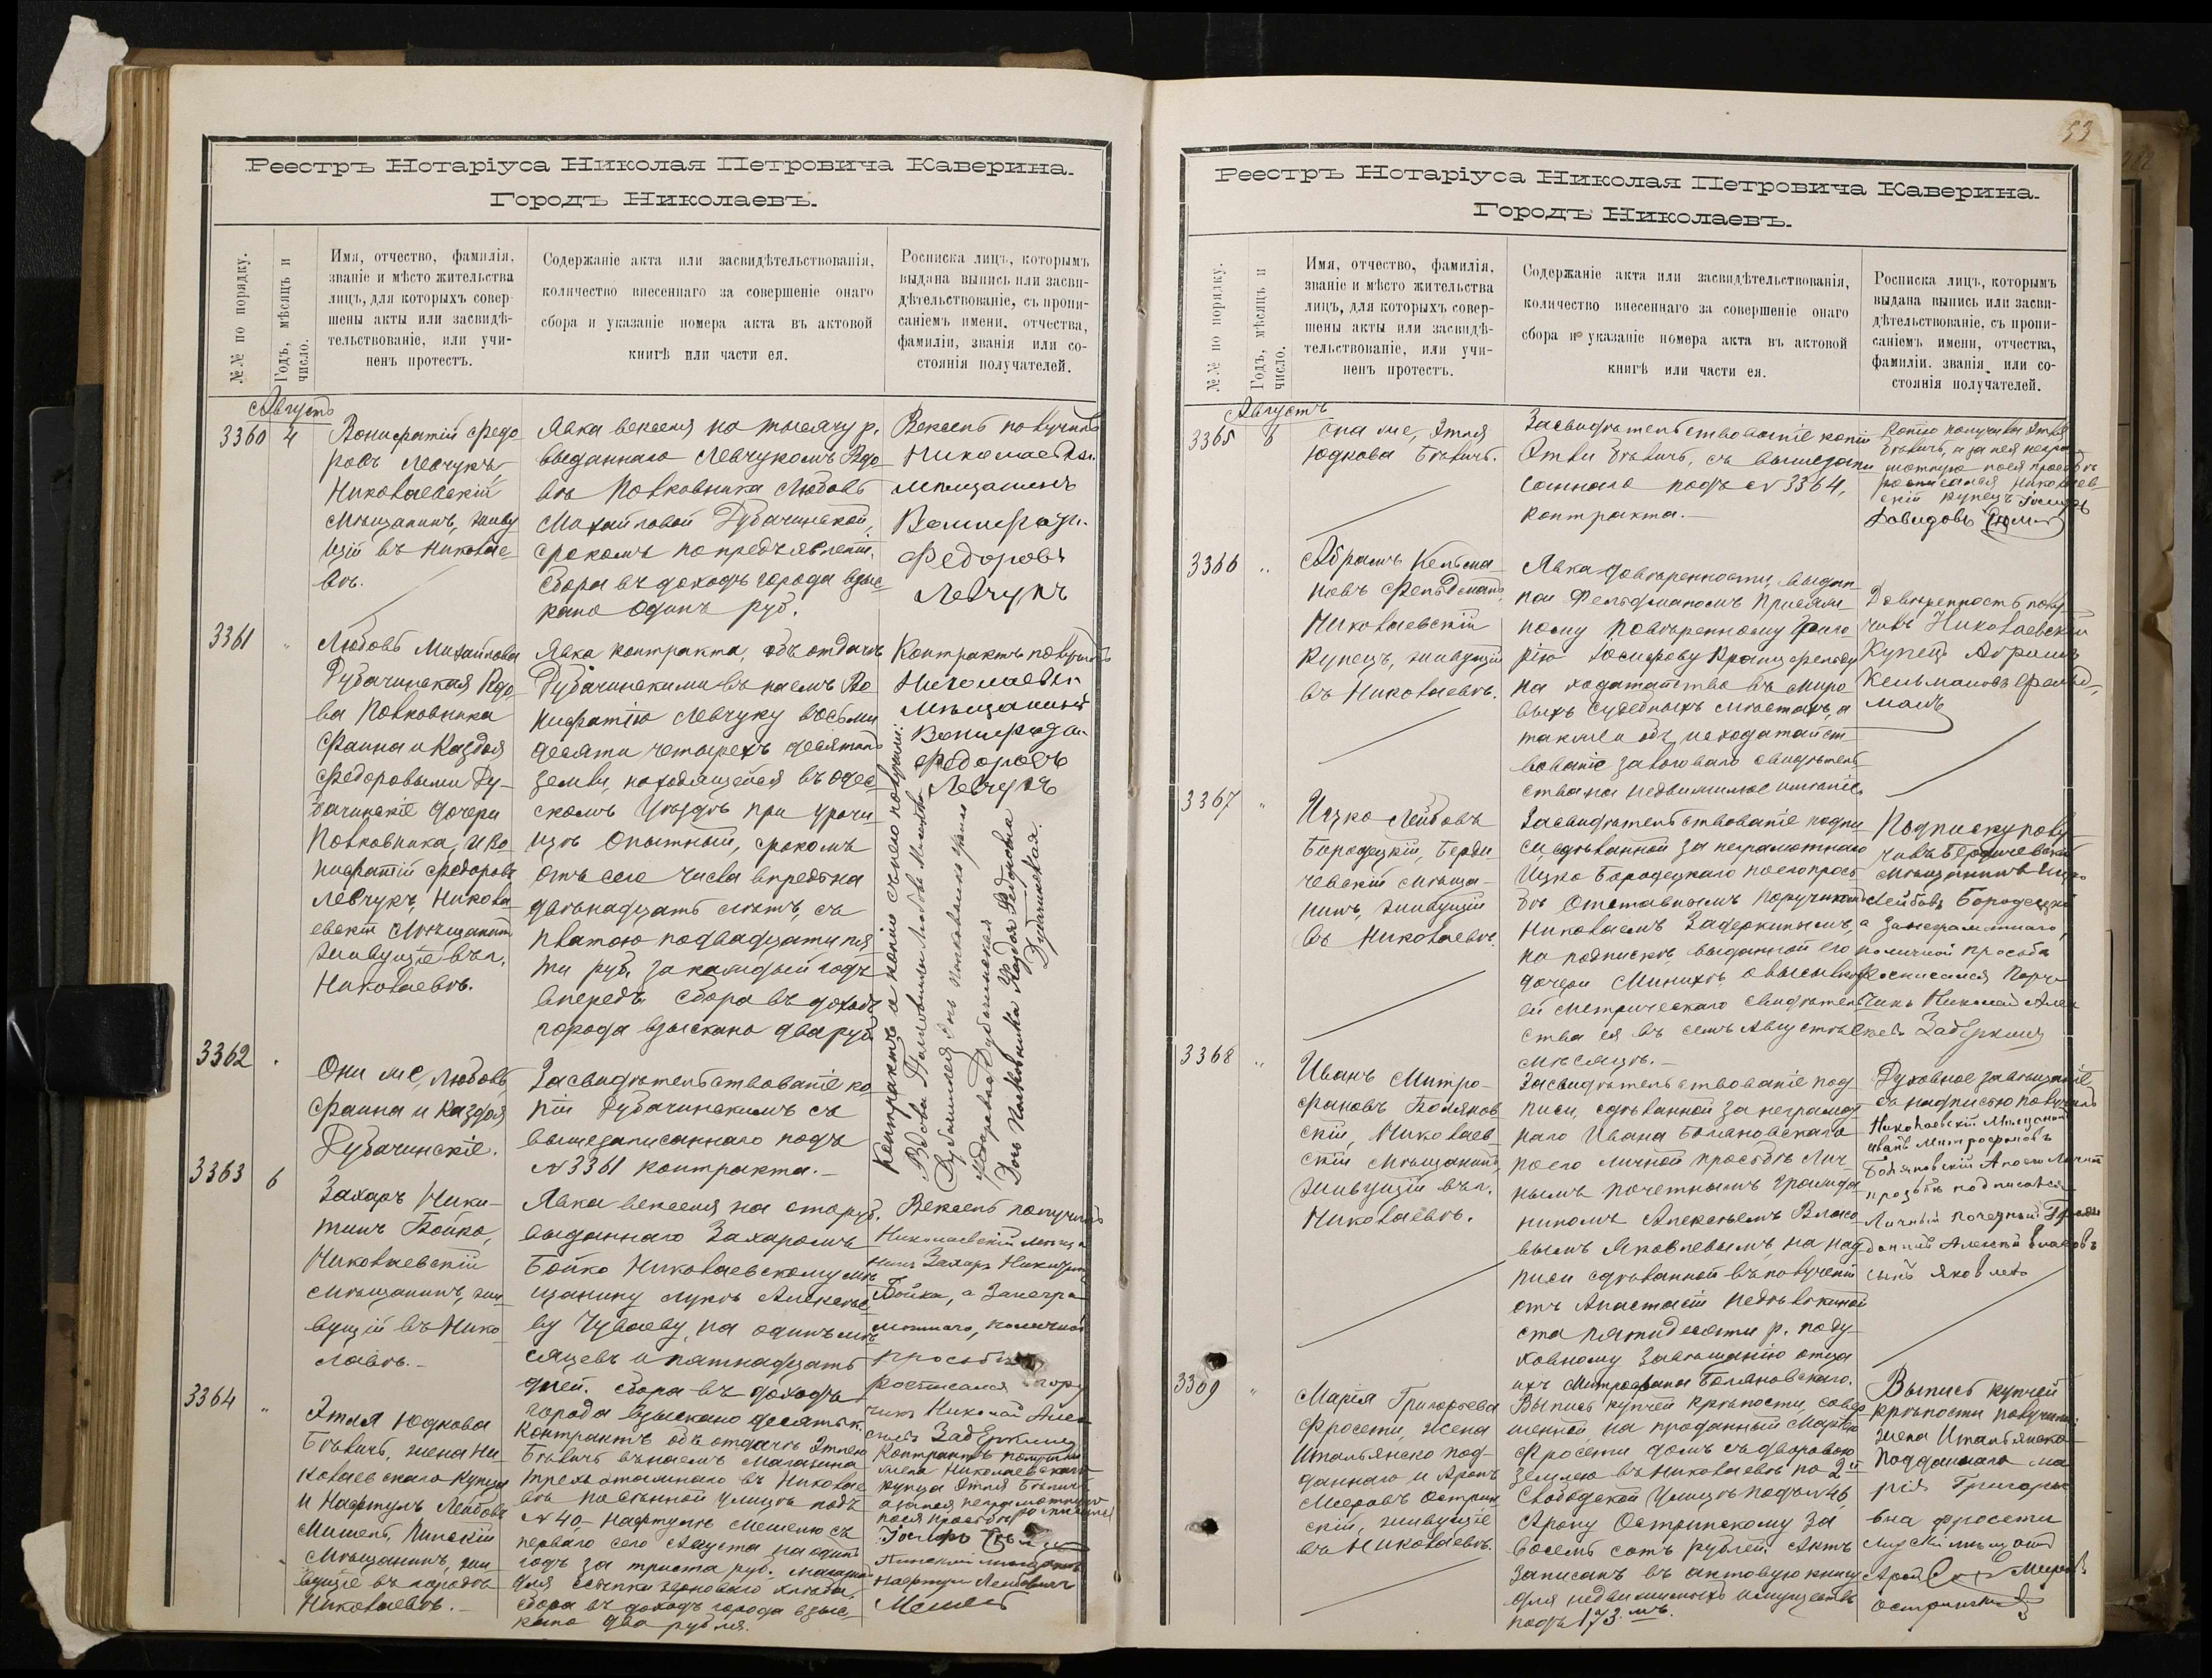 Реестръ Нотаріуса Николая Петровича Каверина.
Городъ Николаевъ.
№№ по порядку.
Годъ, мѣсяцъ и
число.
Имя, отчество, фамилія,
званіе и мѣсто жительства
лицъ, для которыхъ совер-
шены акты или засвидѣ-
тельствованіе, или учи-
ненъ протестъ.
Содержаніе акта или засвидѣтельствованія,
количество внесеннаго за совершеніе онаго
сбора и указаніе номера акта въ актовой
книгѣ или части ея.
Росписка лицъ, которымъ
выдана выпись или засви-
дѣтельствованіе, съ пропи-
саніемъ имени, отчества,
фамиліи, званія или со-
стоянія получателей.
Августъ
3360 4
Вонифатій Федо
ровъ Левчукъ
Николаевскій
Мѣщанинъ, живу
щій въ Николае
вѣ.
Явка векселя на тысячу р.
выданнаго Левчукомъ Вдо
вѣ Полковника Любовѣ
Михайловой Дубачинской,
срокомъ по предъявленіи.
Сбора въ доходъ города взыс
кано одинъ руб.
Вексель получилъ
Николаевскі
Мещанинъ
Федоровъ
Левчукъ
3361 "
Любовь Михайлова
Дубачинская Вдо
ва Полковника
Фаина и Каздоя
Федоровыми Ду-
бачинскіе дочери
Полковника, и Во
нифатій Федоровъ
Левчукъ, Никола
евскій Мѣщанинъ
живущіе въ г.
Николаевѣ.
Явка контракта, объ отдачѣ
Дубачинскими въ наемъ Во
нифатію Левчуку восьми
десяти четырехъ десятинъ
земли, находящейся въ Одес
скомъ Уѣздѣ при урочи
щѣ Опытный, срокомъ
отъ сего числа впредь на
двѣнадцать лѣтъ, съ
платою по двадцати пя
ти руб. за каждый годъ
впередъ. Сбора въ доходъ
города взыскано два руб
Контрактъ получилъ
Николаевскі
Мѣщанинъ
Федоровъ
Левчукъ
Контрактъ и копію съ него получили:
Вдова Полковника Любовь Михайлова
Дубачинская дочь Полковника Фаина
Федоровна Дубачинская
Дочь Полковника Каздоя Федоровна
Дубачинская.
3362 "
Они же, Любовь,
Фаина и Каздоя
Дубачинскіе.
Засвидѣтельствованіе ко
піи Дубачинскимъ съ
вышезаписаннаго подъ
№ 3361 контракта.—
3363 6
Захаръ Ники-
тинъ Бойко,
Николаевскій
Мѣщанинъ, жи
вущій въ Нико
лаевѣ.—
Явка векселя на сто руб.
выданнаго Захаромъ
Бойко Николаевскому мѣ
щанину Лукѣ Алексѣе
ву Чуваеву, на одинъ мѣ
сяцевъ и пятнадцать
дней. Сбора въ доходъ
города взыскано десять к.
Вексель получилъ
Николаевскій мѣща
нинъ Захаръ Никитинъ
Бойко, а за негра
мотнаго, по личной
просьбѣ
росписался Пору
чикъ Николай Алек
сѣевъ Задеркинъ
3364 "
Этля Юдкова
Бѣвичъ, жена Ни
колаевскаго Купца
и Нафтулъ Лейбовъ
Мишель, Пинскій
Мѣщанинъ, жи
вущіе въ городѣ
Николаевѣ.—
Контрактъ объ отдачѣ Этлею
Бѣвичъ въ наемъ Магазина
трехъ этажнаго въ Николае
вѣ по Стѣнной улицѣ подъ
№ 40 – Нафтулю Мешелю съ
перваго сего Августа на одинъ
годъ за триста руб. Магазинъ
для ссыпки зерноваго хлѣба,
Сбора въ доходъ города взыс
кано два рубля.
Контрактъ получили
жена Николаевскаго
купца Этля Бѣвичъ
а за нея неграмотную
по ея просьбѣ росписался
Іосифъ
Пинскій мѣщанинъ
Нафтулъ Лейбовичъ
Мешель
53
Реестръ Нотаріуса Николая Петровича Каверина.
Городъ Николаевъ.
№№ по порядку.
Годъ, мѣсяцъ и
число.
Имя, отчество, фамилія,
званіе и мѣсто жительства
лицъ, для которыхъ совер-
шены акты или засвидѣ-
тельствованіе, или учи-
ненъ протестъ.
Содержаніе акта или засвидѣтельствованія,
количество внесеннаго за совершеніе онаго
сбора и указаніе номера акта въ актовой
книгѣ или части ея.
Росписка лицъ, которымъ
выдана выпись или засви-
дѣтельствованіе, съ пропи-
саніемъ имени, отчества,
фамиліи. званія или со-
стоянія получателей.
Августъ
3365 6
Она же, Этля
Юдкова Бѣвичъ.
Засвидѣтельствованіе копіи
Этли Бѣвичъ, съ вышезапи
саннаго подъ № 3364,
контракта.—
Копію получила Этля
Бѣвичъ, а за нея негра
мотную по ея просьбѣ
росписался Николаев
скій купецъ Іосифъ
Давидовъ
3366 "
Абрамъ Кельма
новъ Фельдманъ
Николаевскій
Купецъ, живущій
въ Николаевѣ.
Явка довѣренности, выдан
ной Фельдманомъ Присяж
ному Повѣренному Григо
рію Іосифову Кранцфельду
на ходатайство въ Миро
выхъ Судебныхъ Мѣстахъ, а
также и объ исходатайст
вованіе заловаго свидѣтель
ства на недвижимое имѣніе.
Довѣренность полу
чилъ Николаевскій
Купецъ Абрамъ
Кельмановъ Фельд-
манъ
3367 "
Ицко Лейбовъ
Бородецкій, Берди
чевскій Мѣща-
нинъ, живущій
въ Николаевѣ.
Засвидѣтельствованіе подпи
си, сдѣланной за неграмотнаго
Ицко Бородецкаго по его прось
бѣ Отставнымъ Поручикомъ
Николаемъ Задеркинымъ,
на подпискѣ, выданной его
дочери Минихѣ, о высылкѣ
ей метрическаго свидѣтель
ства ея въ семъ Августѣ
мѣсяцѣ.—
Подписку полу
чилъ Бердичевскій
Мѣщанинъ Ицко
Лейбовъ Бородецкій
а за неграмотнаго,
по личной просьбѣ
росписался Пору
чикъ Николай Алек
сѣевъ Задеркинъ
3368 "
Иванъ Митро-
фановъ Боляновскій
Николаев-
скій Мѣщанинъ,
живущій въ г.
Николаевѣ.
Засвидѣтельствованіе под
писи, сдѣланной за неграмот
наго Ивана Боляновскаго
по его личной просьбѣ Лич-
нымъ Почетнымъ Гражда
ниномъ Алексѣемъ Власо
вымъ Яковлевымъ, на над
писи сдѣланной въ полученіи
отъ Анастасіи Недѣлкиной
ста пятидесяти р. по ду-
ховному завѣщанію отца
ихъ Митрофана Боляновскаго.
Духовное завѣщаніе
съ надписью получилъ
Николаевскій Мѣщанинъ
Иванъ Митрофановъ
Боляновскій А по его личной
прозьбѣ подписался
Личный почетный Граж
данинъ Алексѣй Власовъ
сынъ Яковлевъ
3369 "
Марія Григорьева
Фросети, жена
Итальянско под-
даннаго и Аронъ
Мееровъ Острин
скій, живущіе
въ Николаевѣ.
Выпись купчей крѣпости, совер
шенной на проданный Маріею
Фросети домъ съ дворовою
землею въ Николаевѣ по 2й
Слободской Улицѣ подъ № 46,
Арону Остринскому за
восемь сотъ рублей. Актъ
записанъ въ актовую книгу
для недвижимыхъ имуществъ
подъ 173 мъ.
Выпись купчей
крѣпости получили:
жена Итальянско
Подданнаго Ма
рія Григорье
вна Фросети
Аронъ Мееровъ
Остринскій